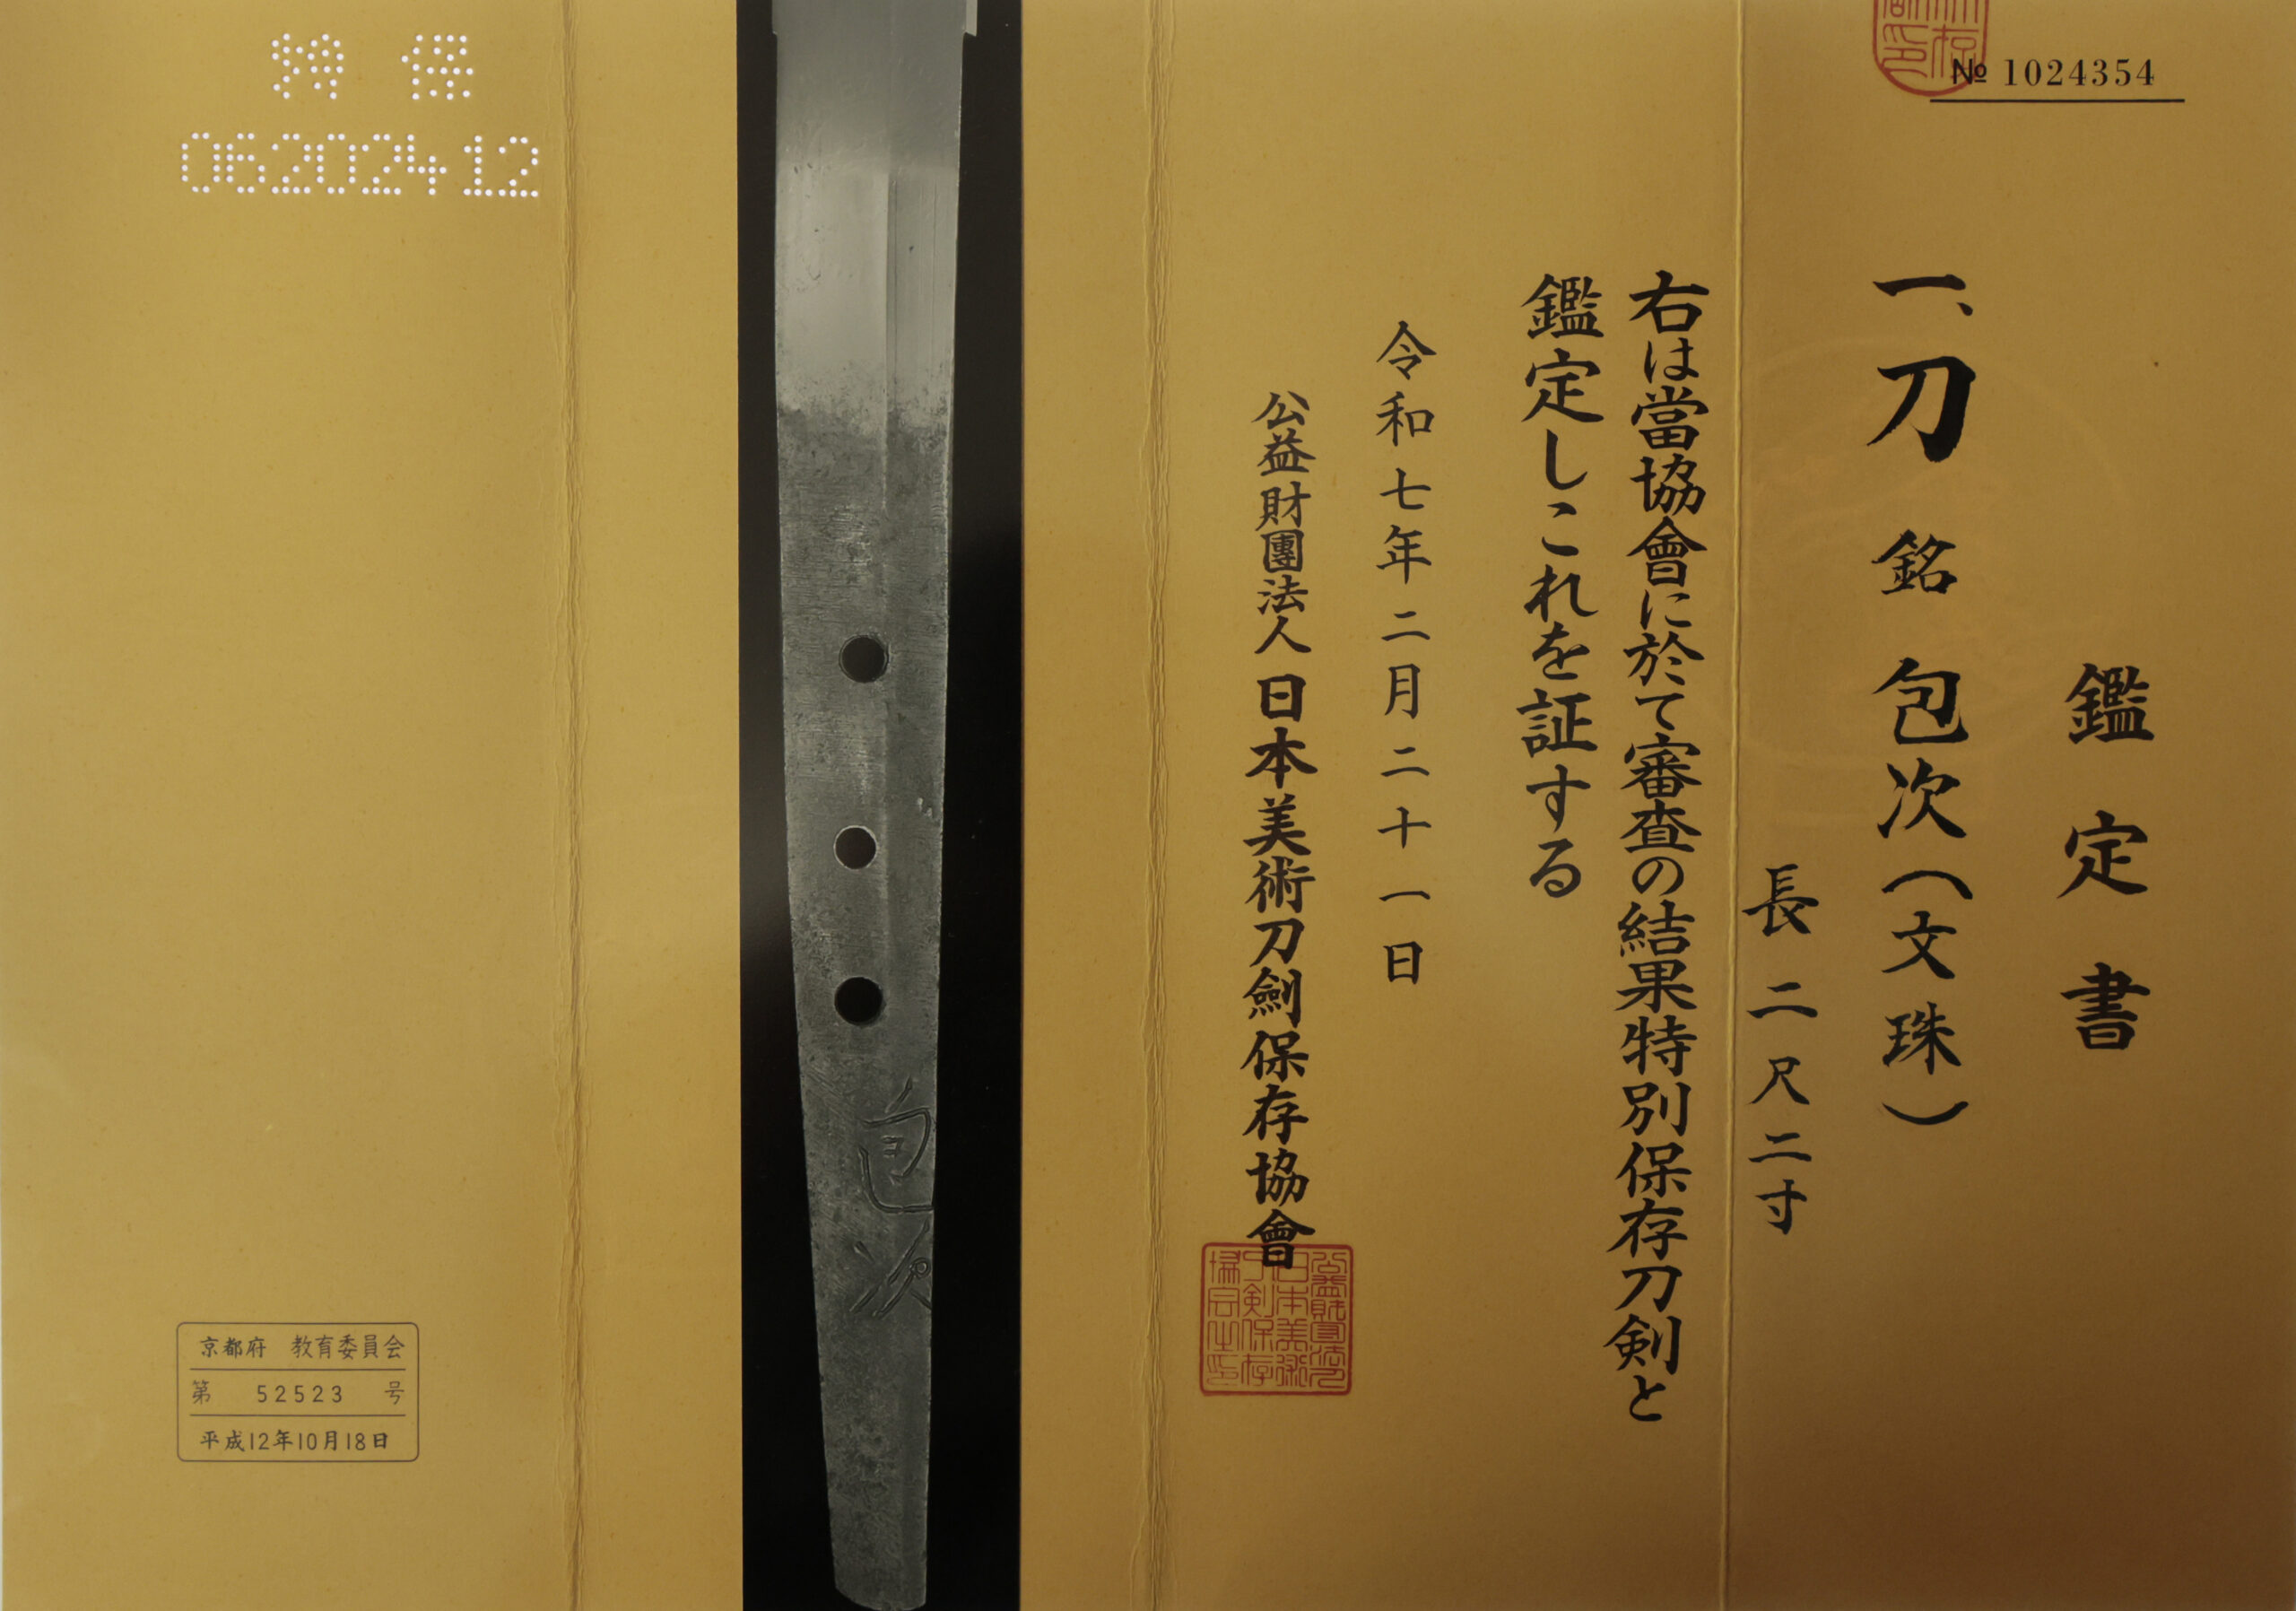 № 1024354
鑑定書
一、刀 銘 包次(文珠)
長二尺二寸
右は當協會に於て審査の結果特別保存刀剣と
鑑定しこれを証する
令和七年二月二十一日
公益財團法人 日本美術刀劍保存協會
公益財団法人日本美術刀剣保存協会之印
包次
特保
06202412
京都府 教育委員会
第 52523 号
平成12年10月18日